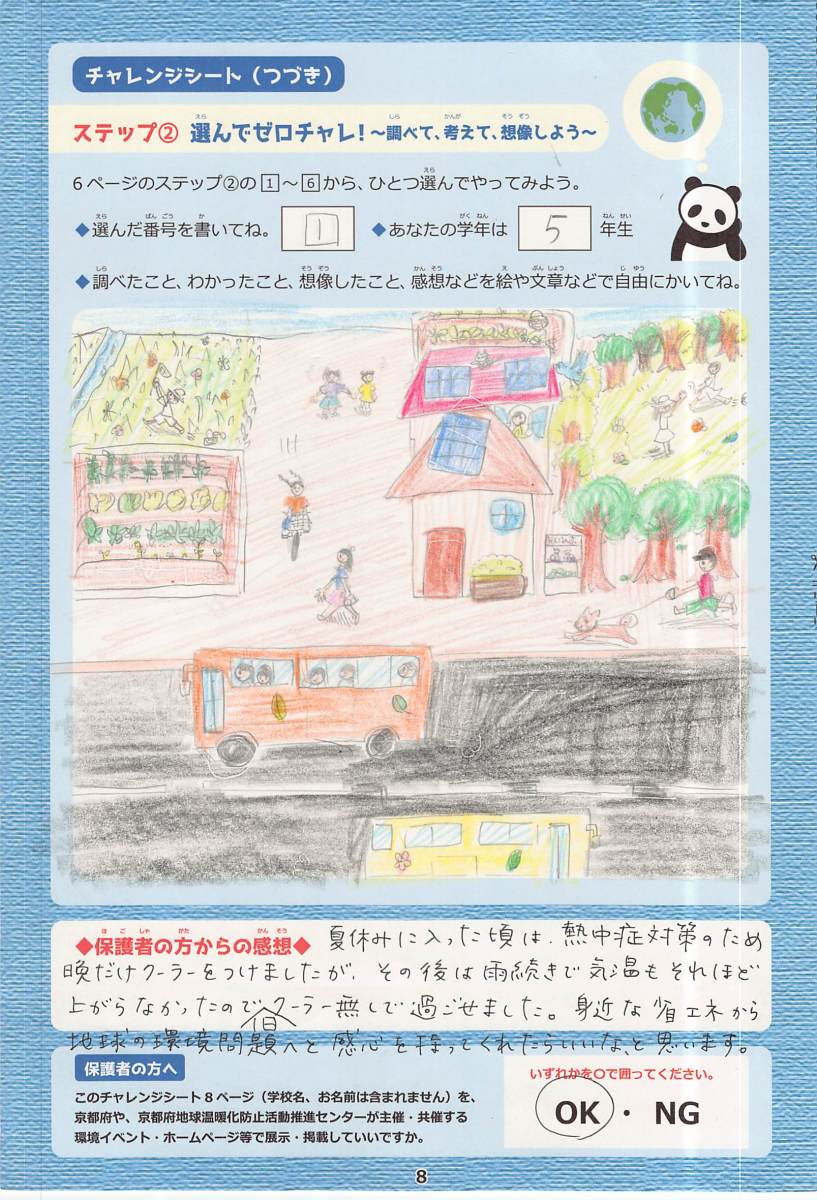 チャレンジシート（つづき）
ステップ② 選んでゼロチャレ！～調べて、考えて、想像しよう～
6ページのステップ②の1～6から、ひとつ選んでやってみよう。
◆選んだ番号を書いてね。 1 ◆あなたの学年は 5 年生
◆調べたこと、わかったこと、想像したこと、感想などを絵や文章などで自由にかいてね。
◆保護者の方からの感想◆ 夏休みに入った頃は、熱中症対策のため
晩だけクーラーをつけましたが、その後は雨続きで気温もそれほど
上がらなかったのでクーラー無しで過ごせました。身近な省エネから
地球の環境問題へと感心を持ってくれたらいいな、と思います。
保護者の方へ
このチャレンジシート8ページ（学校名、お名前は含まれません）を、
京都府や、京都府地球温暖化防止活動推進センターが主催・共催する
環境イベント・ホームページ等で展示・掲載していいですか。
いずれかを○で囲ってください。
OK ・ NG
8